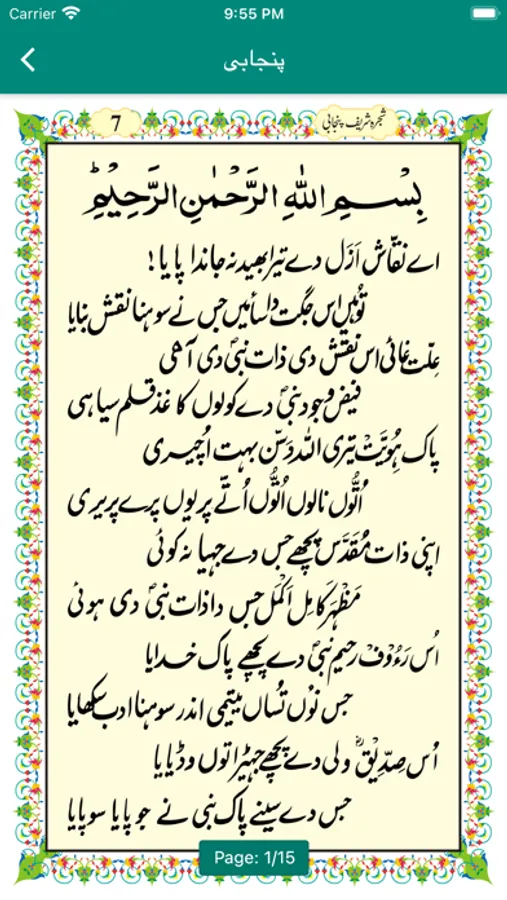 Carrier 9:55 PM
پنجابی
7 شجرہ شریف پنجابی
بِسْمِ اللهِ الرَّحْمٰنِ الرَّحِیْمِ
اے نقّاش اَزَل دے تیرا بھید نہ جاندا پایا!
تُوہیں اس جگت دِلسائیں جس نے سوہنا نقش بنایا
عِلّت غائی اس نقش دی ذات نبیؐ دی آھی
فیض وجود نبیؐ دے کولوں کاغذ قلم سیاہی
پاک ہُوِیَّتْ تیری اللہ دَسّن بہت اُچیری
اُتُّوں نالوں اُتُّوں اُتّے پریوں پرے پریری
اپنی ذات مُقَدَّس پچھے جس دے جہیا نہ کوئی
مَظْہَرِ کامِل اَکْمَل جس دا ذات نبیؐ دی ہوئی
اُس رَءُوْفْ رحیم نبیؐ دے پچھے پاک خدایا
جس نوں تُساں یتیمی اندر سوہنا ادب سکھایا
اُس صِدِّیْقؓ ولی دے پچھے جہڑا توں وڈیایا
جس دے سینے پاک نبی نے جو پایا سو پایا
Page: 1/15